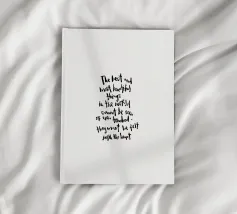 The best and
most beautiful
things
in the world
cannot be seen
or even touched -
they must be felt
with the heart